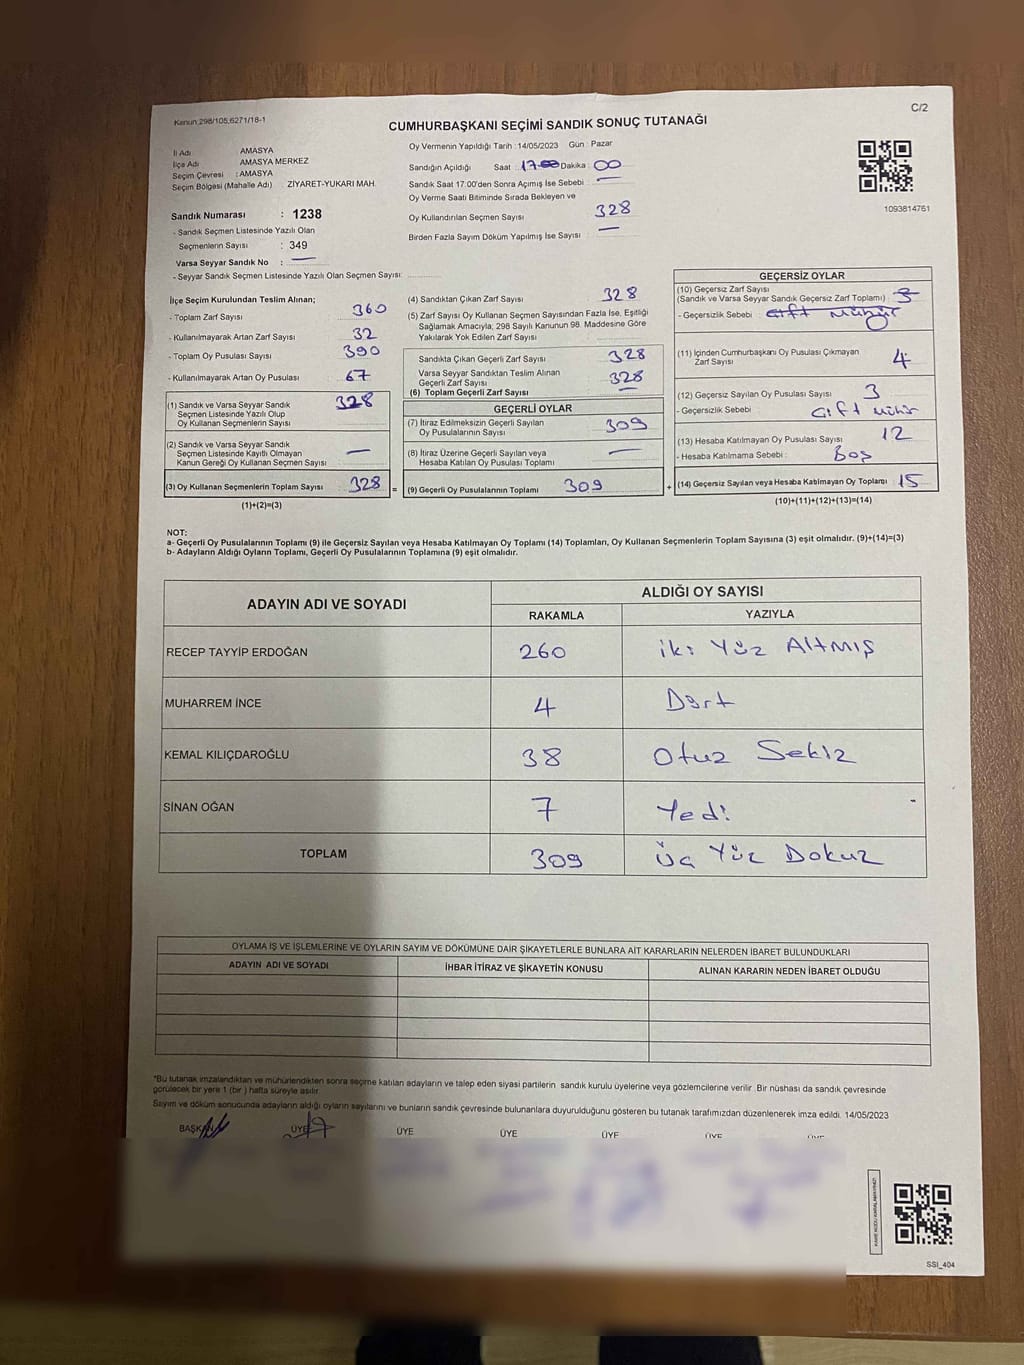 C/2
Kanun;298/105,6271/18-1
CUMHURBAŞKANI SEÇİMİ SANDIK SONUÇ TUTANAĞI
İl Adı AMASYA
İlçe Adı AMASYA MERKEZ
Seçim Çevresi : AMASYA
Seçim Bölgesi (Mahalle Adı) : ZİYARET-YUKARI MAH.
Sandık Numarası : 1238
- Sandık Seçmen Listesinde Yazılı Olan
Seçmenlerin Sayısı : 349
Varsa Seyyar Sandık No : —
- Seyyar Sandık Seçmen Listesinde Yazılı Olan Seçmen Sayısı:
Oy Vermenin Yapıldığı Tarih : 14/05/2023 Gün : Pazar
Sandığın Açıldığı Saat : 17 Dakika : 00
Sandık Saat 17.00'den Sonra Açımış İse Sebebi : —
Oy Verme Saati Bitiminde Sırada Bekleyen ve
Oy Kullandırılan Seçmen Sayısı 328
Birden Fazla Sayım Döküm Yapılmış İse Sayısı : —
1093814761
İlçe Seçim Kurulundan Teslim Alınan;
- Toplam Zarf Sayısı 360
- Kullanılmayarak Artan Zarf Sayısı 32
- Toplam Oy Pusulası Sayısı 390
- Kullanılmayarak Artan Oy Pusulası 67
(1) Sandık ve Varsa Seyyar Sandık 328
Seçmen Listesinde Yazılı Olup
Oy Kullanan Seçmenlerin Sayısı
(2) Sandık ve Varsa Seyyar Sandık
Seçmen Listesinde Kayıtlı Olmayan —
Kanun Gereği Oy Kullanan Seçmen Sayısı
(3) Oy Kullanan Seçmenlerin Toplam Sayısı 328 =
(1)+(2)=(3)
(4) Sandıktan Çıkan Zarf Sayısı 328
(5) Zarf Sayısı Oy Kullanan Seçmen Sayısından Fazla İse, Eşitliği
Sağlamak Amacıyla; 298 Sayılı Kanunun 98. Maddesine Göre
Yakılarak Yok Edilen Zarf Sayısı
Sandıkta Çıkan Geçerli Zarf Sayısı 328
Varsa Seyyar Sandıktan Teslim Alınan
Geçerli Zarf Sayısı
(6) Toplam Geçerli Zarf Sayısı 328
GEÇERLİ OYLAR
(7) İtiraz Edilmeksizin Geçerli Sayılan 309
Oy Pusulalarının Sayısı
(8) İtiraz Üzerine Geçerli Sayılan veya —
Hesaba Katılan Oy Pusulası Toplamı
(9) Geçerli Oy Pusulalarının Toplamı 309 +
GEÇERSİZ OYLAR
(10) Geçersiz Zarf Sayısı
(Sandık ve Varsa Seyyar Sandık Geçersiz Zarf Toplamı) : 3
- Geçersizlik Sebebi : Çift Mühür
(11) İçinden Cumhurbaşkanı Oy Pusulası Çıkmayan 4
Zarf Sayısı
(12) Geçersiz Sayılan Oy Pusulası Sayısı 3
- Geçersizlik Sebebi Çift mühür
(13) Hesaba Katılmayan Oy Pusulası Sayısı 12
- Hesaba Katılmama Sebebi : Boş
(14) Geçersiz Sayılan veya Hesaba Katılmayan Oy Toplamı 15
(10)+(11)+(12)+(13)=(14)
NOT:
a- Geçerli Oy Pusulalarının Toplamı (9) ile Geçersiz Sayılan veya Hesaba Katılmayan Oy Toplamı (14) Toplamları, Oy Kullanan Seçmenlerin Toplam Sayısına (3) eşit olmalıdır. (9)+(14)=(3)
b- Adayların Aldığı Oyların Toplamı, Geçerli Oy Pusulalarının Toplamına (9) eşit olmalıdır.
ADAYIN ADI VE SOYADI ALDIĞI OY SAYISI
RAKAMLA YAZIYLA
RECEP TAYYİP ERDOĞAN 260 iki Yüz Altmış
MUHARREM İNCE 4 Dört
KEMAL KILIÇDAROĞLU 38 Otuz Sekiz
SİNAN OĞAN 7 Yedi
TOPLAM 309 Üç Yüz Dokuz
OYLAMA İŞ VE İŞLEMLERİNE VE OYLARIN SAYIM VE DÖKÜMÜNE DAİR ŞİKAYETLERLE BUNLARA AİT KARARLARIN NELERDEN İBARET BULUNDUKLARI
ADAYIN ADI VE SOYADI İHBAR İTİRAZ VE ŞİKAYETİN KONUSU ALINAN KARARIN NEDEN İBARET OLDUĞU
*Bu tutanak imzalandıktan ve mühürlendikten sonra seçime katılan adayların ve talep eden siyasi partilerin sandık kurulu üyelerine veya gözlemcilerine verilir. Bir nüshası da sandık çevresinde
görülecek bir yere 1 (bir ) hafta süreyle asılır.
Sayım ve döküm sonucunda adayların aldığı oyların sayılarını ve bunların sandık çevresinde bulunanlara duyurulduğunu gösteren bu tutanak tarafımızdan düzenlenerek imza edildi. 14/05/2023
BAŞKAN ÜYE ÜYE ÜYE ÜYE ÜYE ÜYE
SSI_404